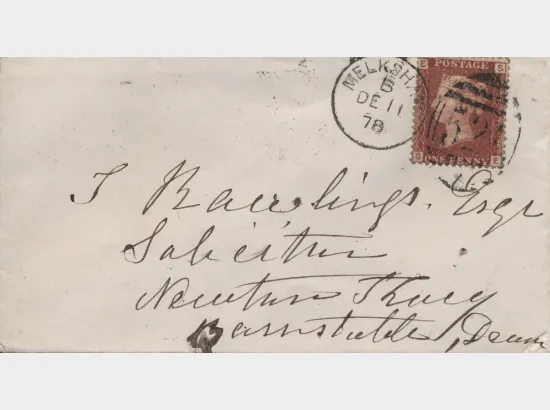 MELKSHA
B
DE 11
78
E S
POSTAGE
52
S E
ONE PENNY
J Rawlings. Esqr
Solicitor
Newton Tracy
Barnstable, Devon